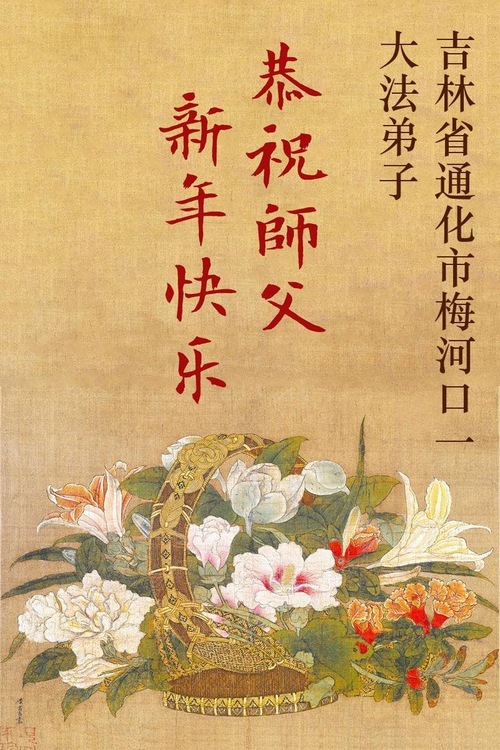 吉林省通化市梅河口一
大法弟子
恭祝師父
新年快乐